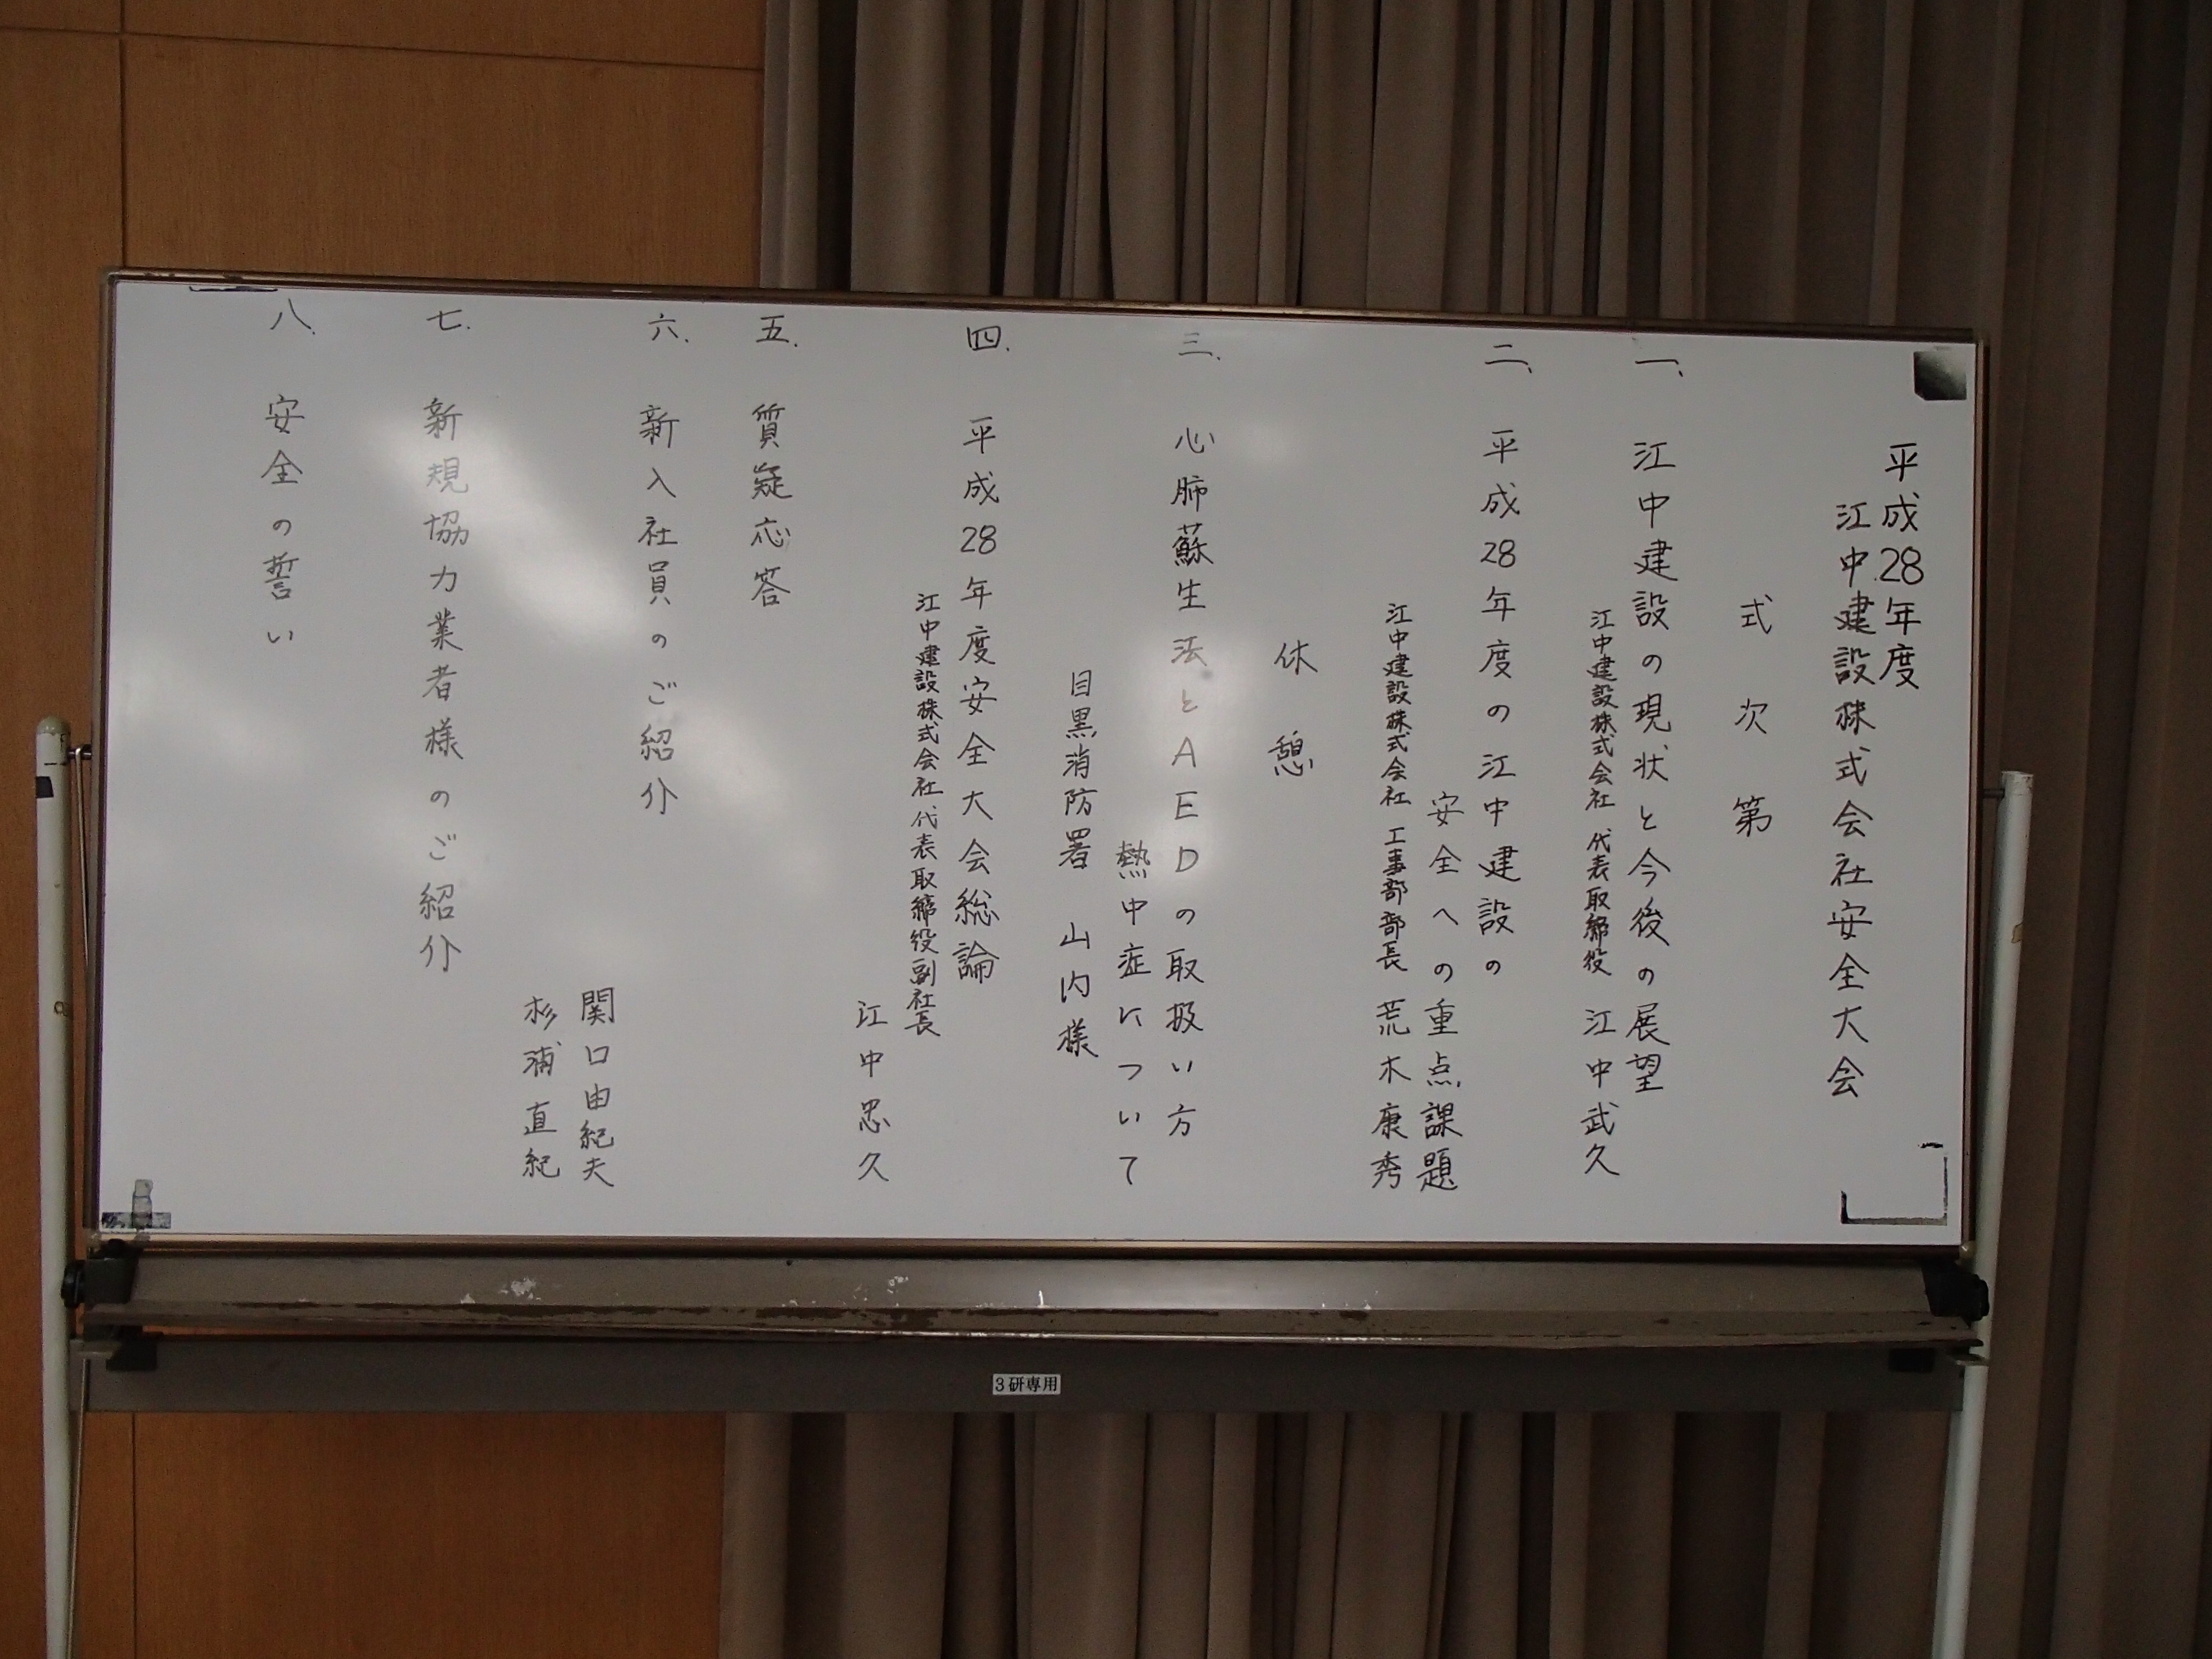 平成28年度
江中建設株式会社安全大会
式次第
一、江中建設の現状と今後の展望
江中建設株式会社 代表取締役 江中武久
二、平成28年度の江中建設の
安全への重点課題
江中建設株式会社 工事部部長 荒木康秀
休憩
三.心肺蘇生法とAEDの取扱い方
熱中症について
目黒消防署 山内様
四.平成28年度安全大会総論
江中建設株式会社 代表取締役副社長
江中忠久
五.質疑応答
六.新入社員のご紹介
関口由紀夫
杉浦直紀
七.新規協力業者様のご紹介
八.安全の誓い
3研専用